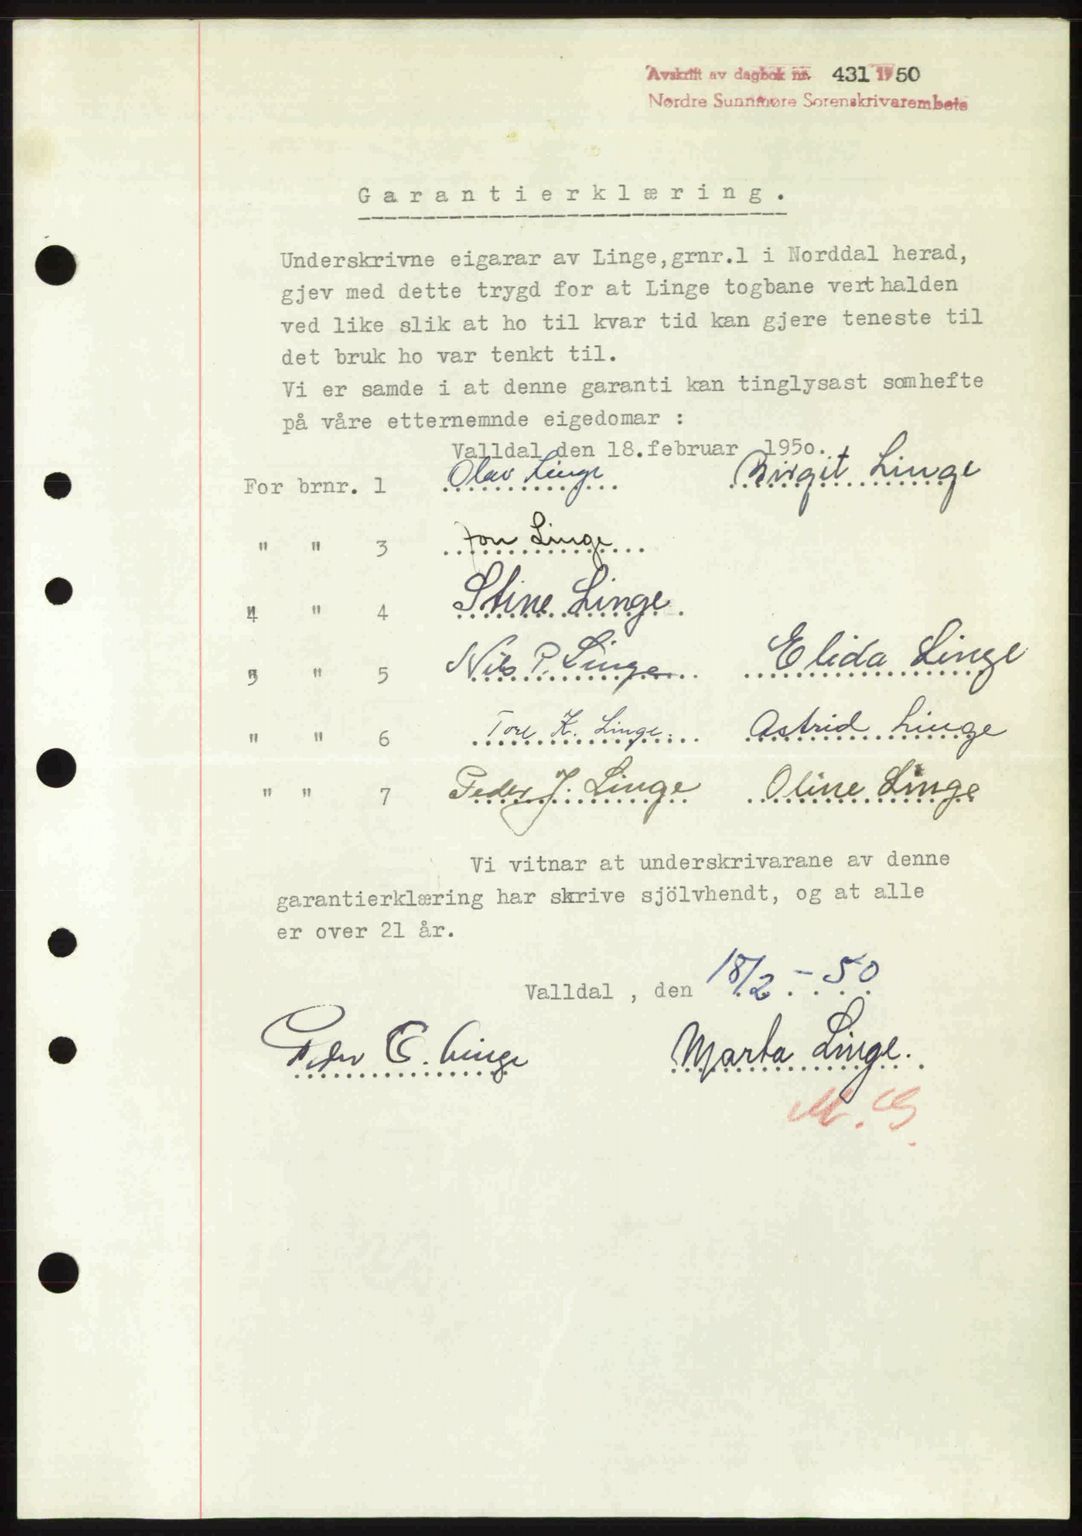 Avskrift av dagbok nr. 431 1950
Nordre Sunnmøre Sorenskrivarembete
Garantierklæring.
Underskrivne eigarar av Linge,grnr.1 i Norddal herad,
gjev med dette trygd for at Linge togbane vert halden
ved like slik at ho til kvar tid kan gjere teneste til
det bruk ho var tenkt til.
Vi er samde i at denne garanti kan tinglysast som hefte
på våre etternemnde eigedomar :
Valldal den 18.februar 1950.
For brnr. 1 Olav Linge Birgit Linge
" " 3 Jon Linge
" " 4 Stine Linge.
" " 5 Nils P. Linge Elida Linge
" " 6 Tore K. Linge. Astrid Linge
" " 7 Peder J. Linge Oline Linge
Vi vitnar at underskrivarane av denne
garantierklæring har skrive sjölvhendt, og at alle
er over 21 år.
Valldal , den 18/2 - 50
Peder C. Linge Marta Linge.
M. G.